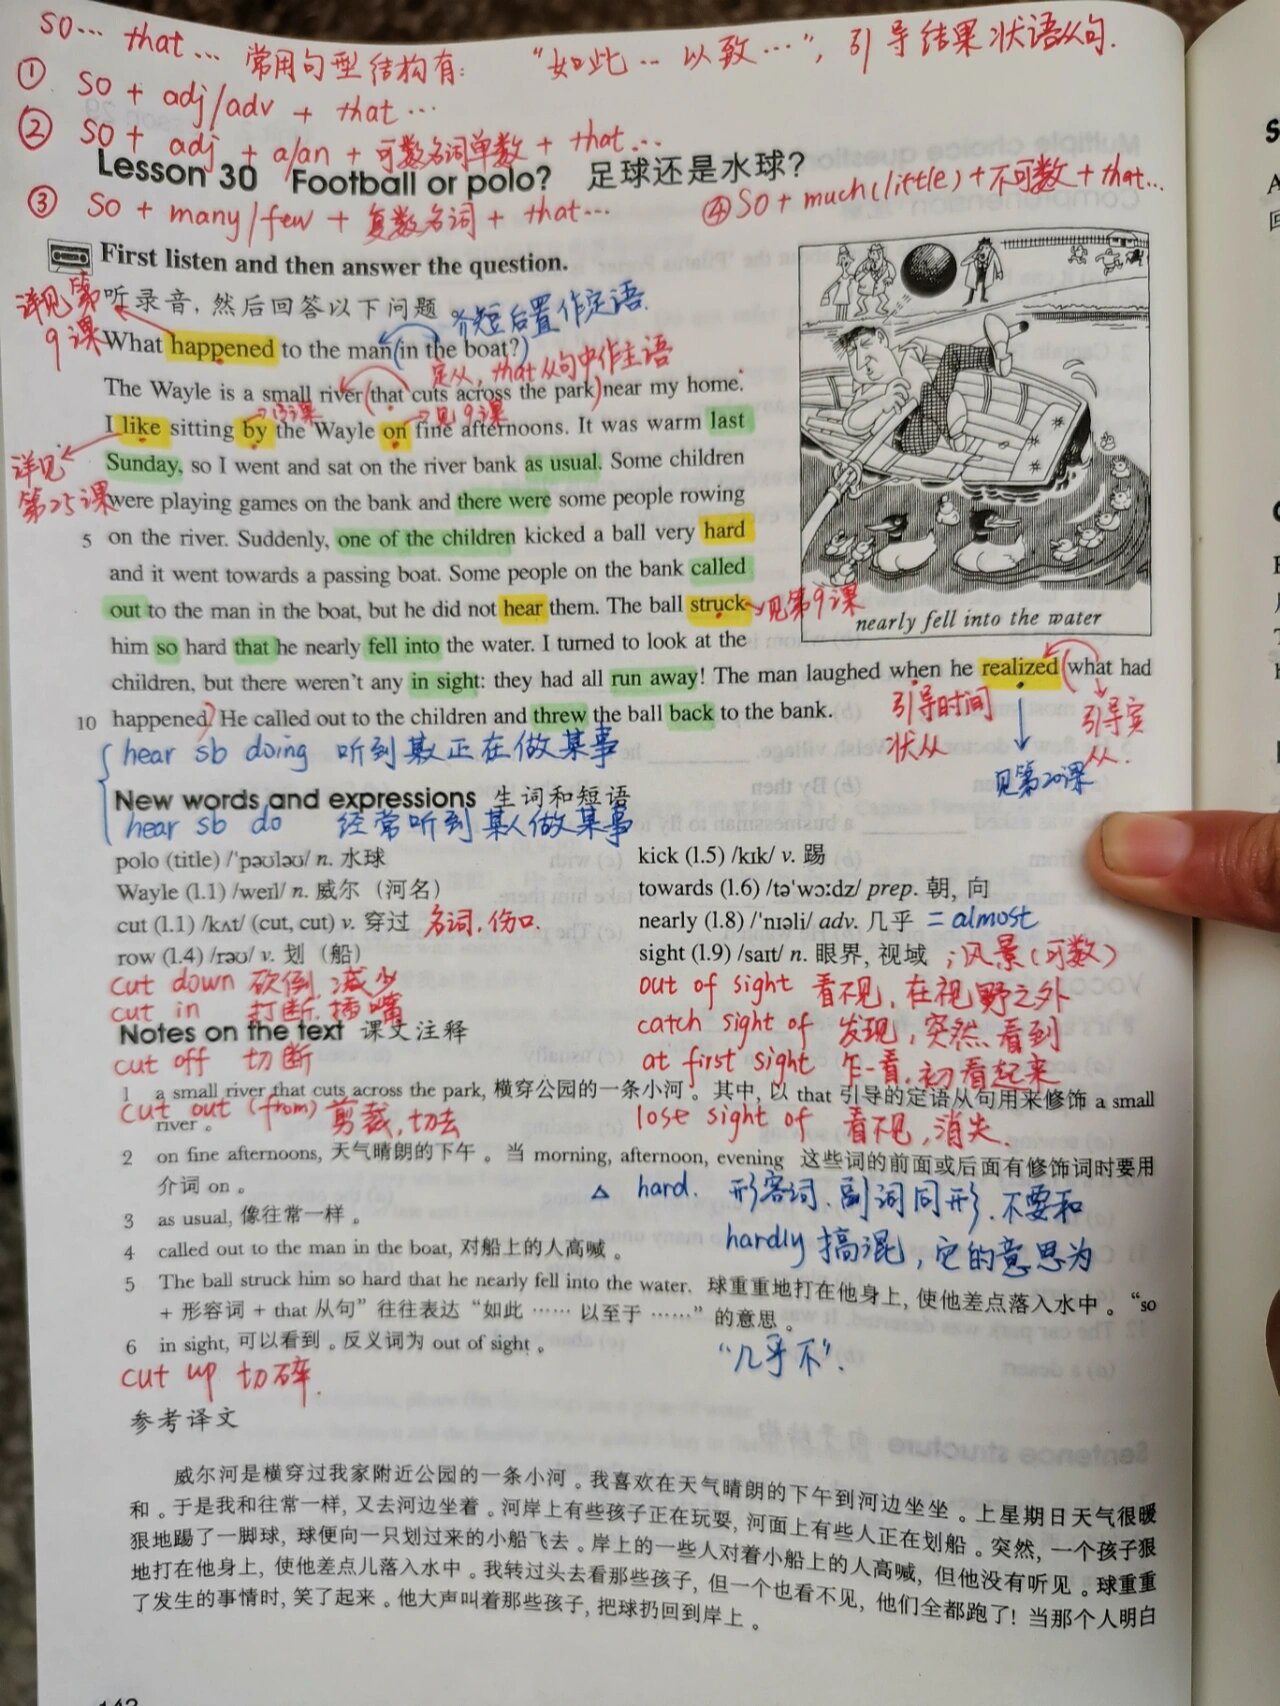 so… that… 常用句型结构有: "如此… 以致…", 引导结果状语从句.
① so + adj/adv + that…
② so + adj + a/an + 可数名词单数 + that…
Lesson 30 Football or polo? 足球还是水球?
③ so + many/few + 复数名词 + that… ④ so + much(little) + 不可数 + that…
First listen and then answer the question.
详见第9课
听录音, 然后回答以下问题。
介短后置作定语.
What happened to the man (in the boat?)
定从, that从句中作主语
The Wayle is a small river (that cuts across the park) near my home.
13课 见9课
I like sitting by the Wayle on fine afternoons. It was warm last
详见第25课
Sunday, so I went and sat on the river bank as usual. Some children
were playing games on the bank and there were some people rowing
5 on the river. Suddenly, one of the children kicked a ball very hard
and it went towards a passing boat. Some people on the bank called
out to the man in the boat, but he did not hear them. The ball struck
见第9课
nearly fell into the water
him so hard that he nearly fell into the water. I turned to look at the
children, but there weren't any in sight: they had all run away! The man laughed when he realized (what had
10 happened.) He called out to the children and threw the ball back to the bank.
引导时间状从
引导宾从.
见第20课
hear sb doing 听到某人正在做某事
New words and expressions 生词和短语
hear sb do 经常听到某人做某事
polo (title) /ˈpəʊləʊ/ n. 水球
Wayle (l.1) /weɪl/ n. 威尔（河名）
cut (l.1) /kʌt/ (cut, cut) v. 穿过 名词, 伤口.
row (l.4) /rəʊ/ v. 划（船）
kick (l.5) /kɪk/ v. 踢
towards (l.6) /təˈwɔːdz/ prep. 朝, 向
nearly (l.8) /ˈnɪəli/ adv. 几乎 = almost
sight (l.9) /saɪt/ n. 眼界, 视域 ; 风景(可数)
cut down 砍倒, 减少
cut in 打断, 插嘴
out of sight 看不见, 在视野之外
catch sight of 发现, 突然看到
Notes on the text 课文注释
cut off 切断
at first sight 乍一看, 初看起来
1 a small river that cuts across the park, 横穿公园的一条小河。其中, 以 that 引导的定语从句用来修饰 a small
river。
cut out (from) 剪裁, 切去
lose sight of 看不见, 消失.
2 on fine afternoons, 天气晴朗的下午。当 morning, afternoon, evening 这些词的前面或后面有修饰词时要用
介词 on。
△ hard. 形容词、副词同形, 不要和
hardly 搞混, 它的意思为
"几乎不".
3 as usual, 像往常一样。
4 called out to the man in the boat, 对船上的人高喊。
5 The ball struck him so hard that he nearly fell into the water. 球重重地打在他身上, 使他差点落入水中。“so
+ 形容词 + that 从句”往往表达“如此 …… 以至于 ……”的意思。
6 in sight, 可以看到。反义词为 out of sight。
cut up 切碎.
参考译文
威尔河是横穿过我家附近公园的一条小河。我喜欢在天气晴朗的下午到河边坐坐。上星期日天气很暖
和。于是我和往常一样, 又去河边坐着。河岸上有些孩子正在玩耍, 河面上有些人正在划船。突然, 一个孩子狠
狠地踢了一脚球, 球便向一只划过来的小船飞去。岸上的一些人对着小船上的人高喊, 但他没有听见。球重重
地打在他身上, 使他差点儿落入水中。我转过头去看那些孩子, 但一个也看不见, 他们全都跑了! 当那个人明白
了发生的事情时, 笑了起来。他大声叫着那些孩子, 把球扔回到岸上。